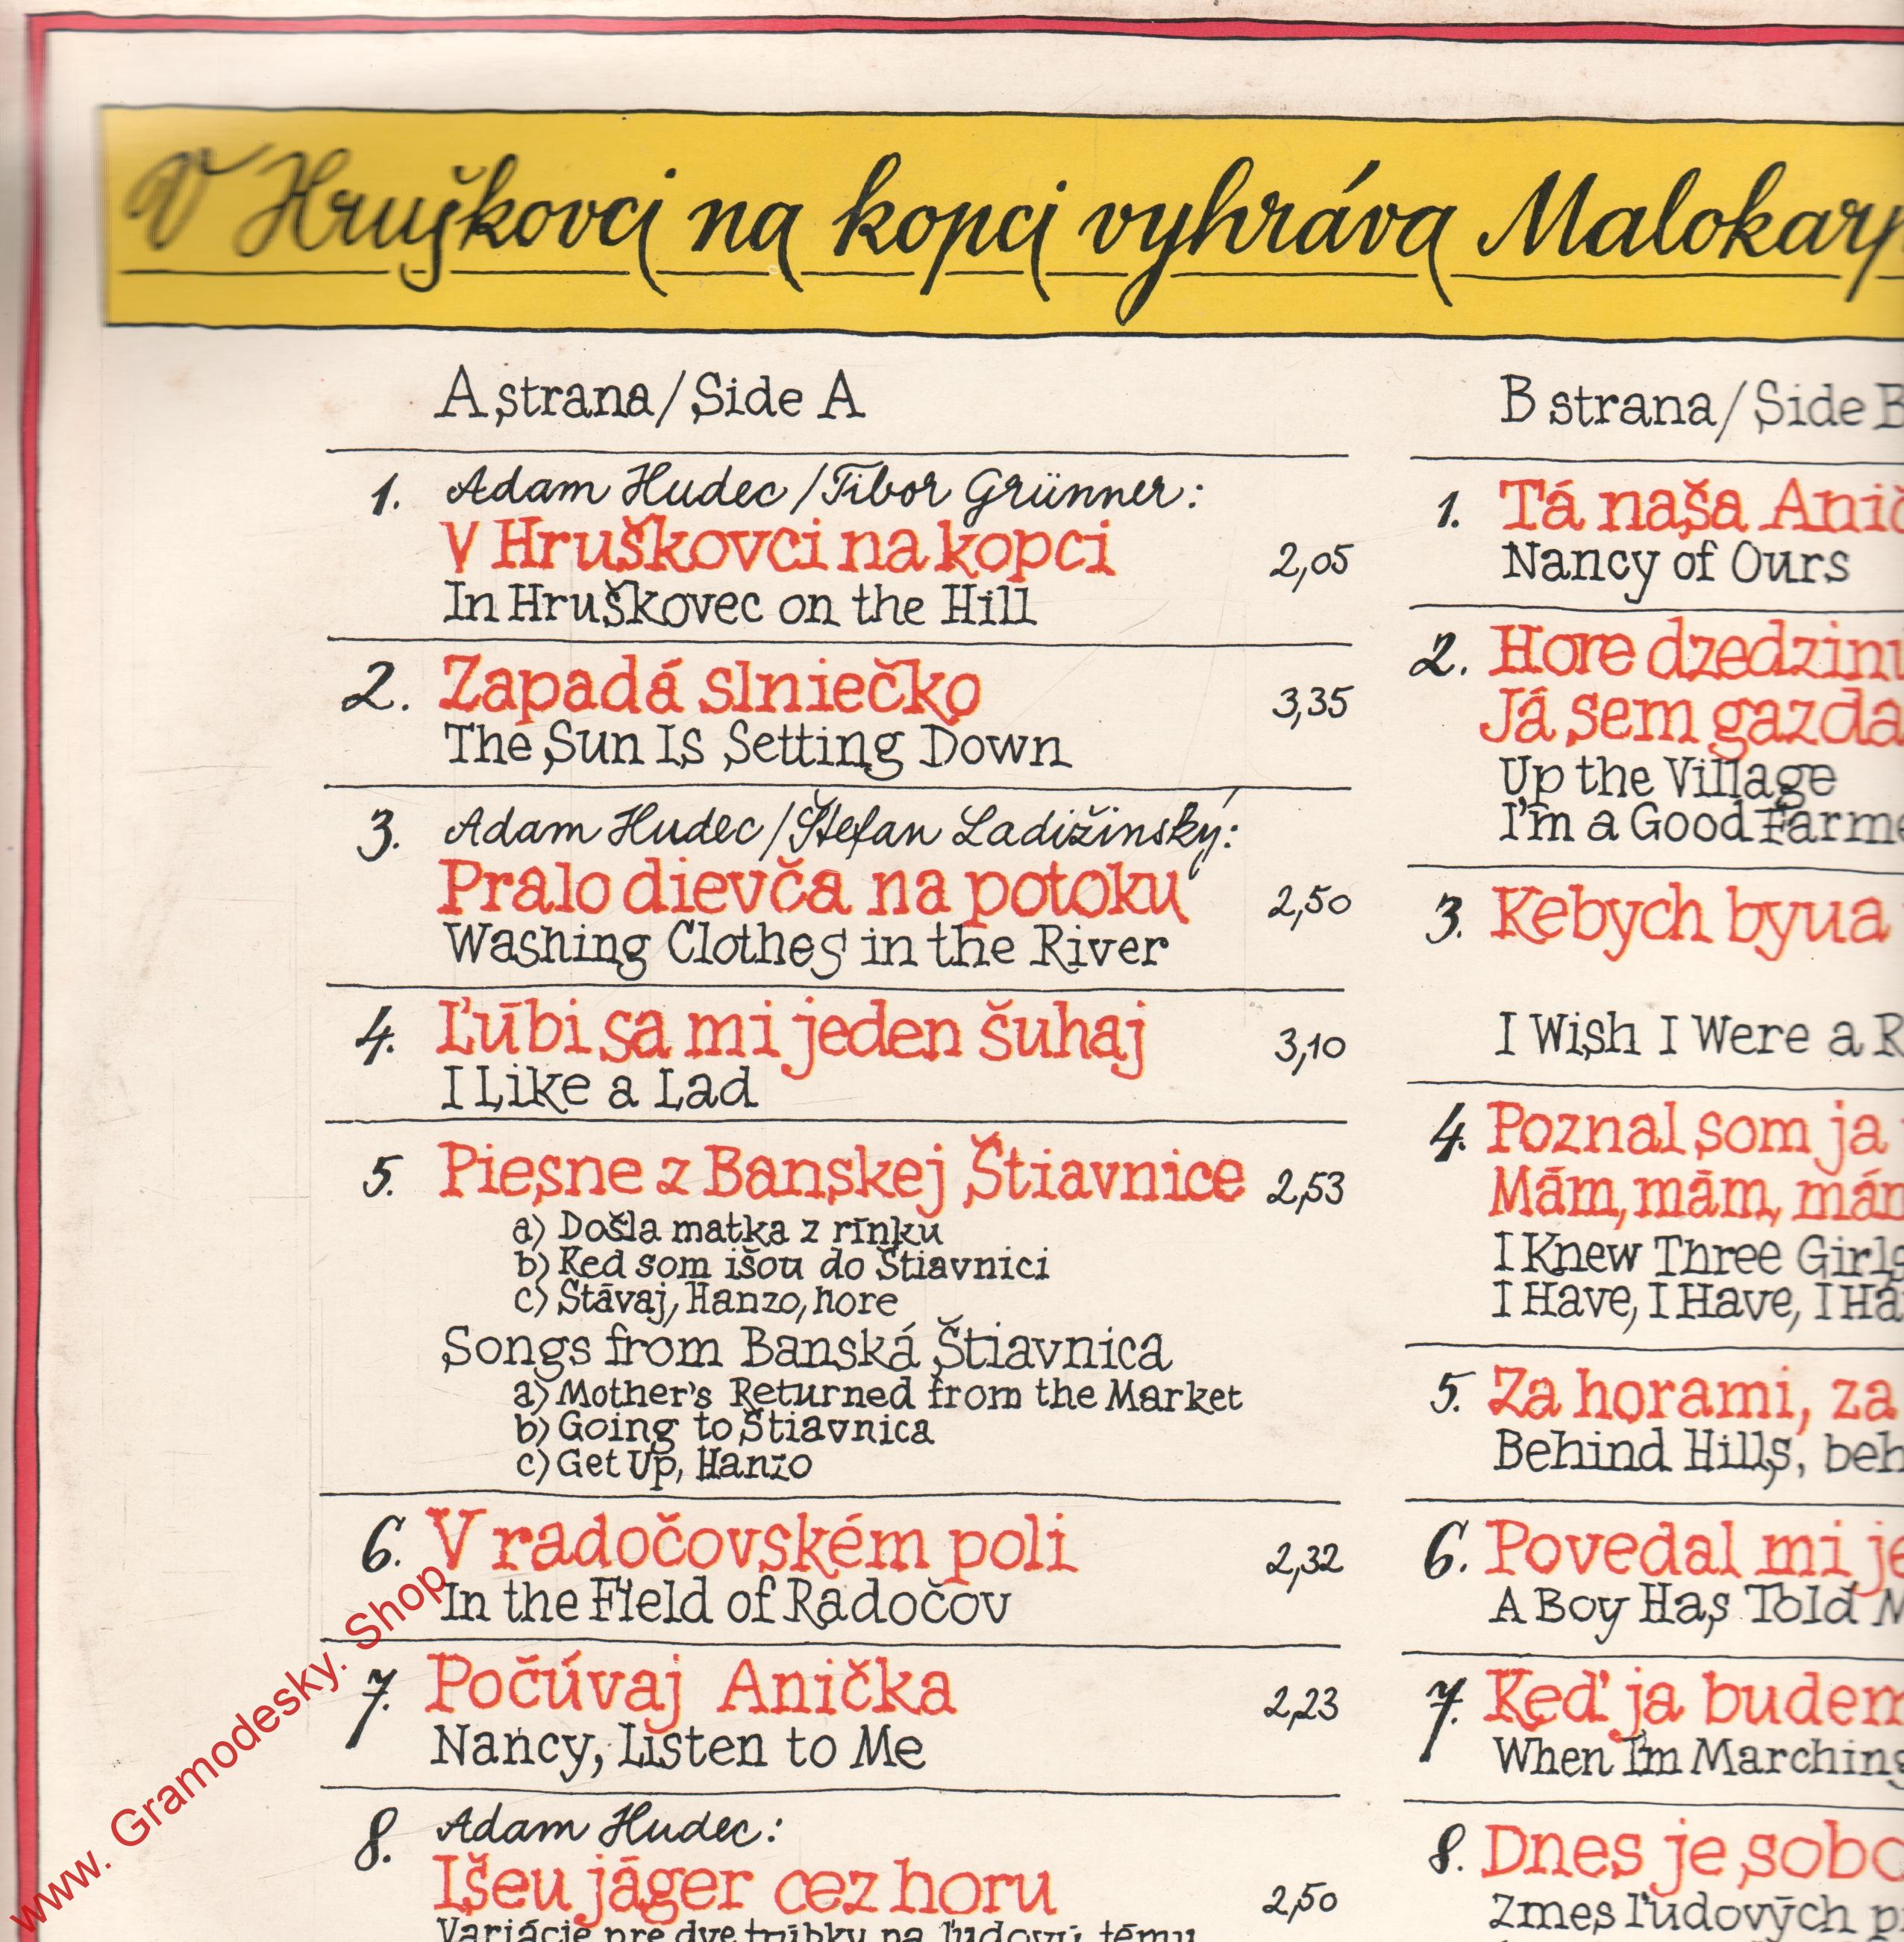 V Hruškovci na kopci vyhráva
A strana/Side A
1. Adam Hudec/Tibor Grünner:
V Hruškovci na kopci 2,05
In Hruškovec on the Hill
2. Zapadá slniečko 3,35
The Sun Is Setting Down
3. Adam Hudec/Štefan Ladižinský:
Pralo dievča na potoku 2,50
Washing Clothes in the River
4. Ľúbi sa mi jeden šuhaj 3,10
I Like a Lad
5. Piesne z Banskej Štiavnice 2,53
a) Došla matka z rínku
b) Ked som išou do Štiavnici
c) Stávaj, Hanzo, hore
Songs from Banská Štiavnica
a) Mother's Returned from the Market
b) Going to Štiavnica
c) Get Up, Hanzo
6. V radočovském poli 2,32
In the Field of Radočov
7. Počúvaj Anička 2,23
Nancy, Listen to Me
8. Adam Hudec:
Išeu jáger cez horu 2,50
Variácie pre dve trúbky na ľudovú tému
B strana/Side B
1. Tá naša
Nancy of Ours
2. Hore
Já sem gazda
Up the Village
I'm a Good
3. Kebych byua
I Wish I Were a
4. Poznal som ja
Mám, mám,
I Knew Three Girls
I Have, I Have, I
5. Za horami, za
Behind Hills,
6. Povedal mi
A Boy Has Told
7. Keď ja budem
When I'm Marching
8. Dnes je
Zmes ľudových
www. Gramodesky. Shop